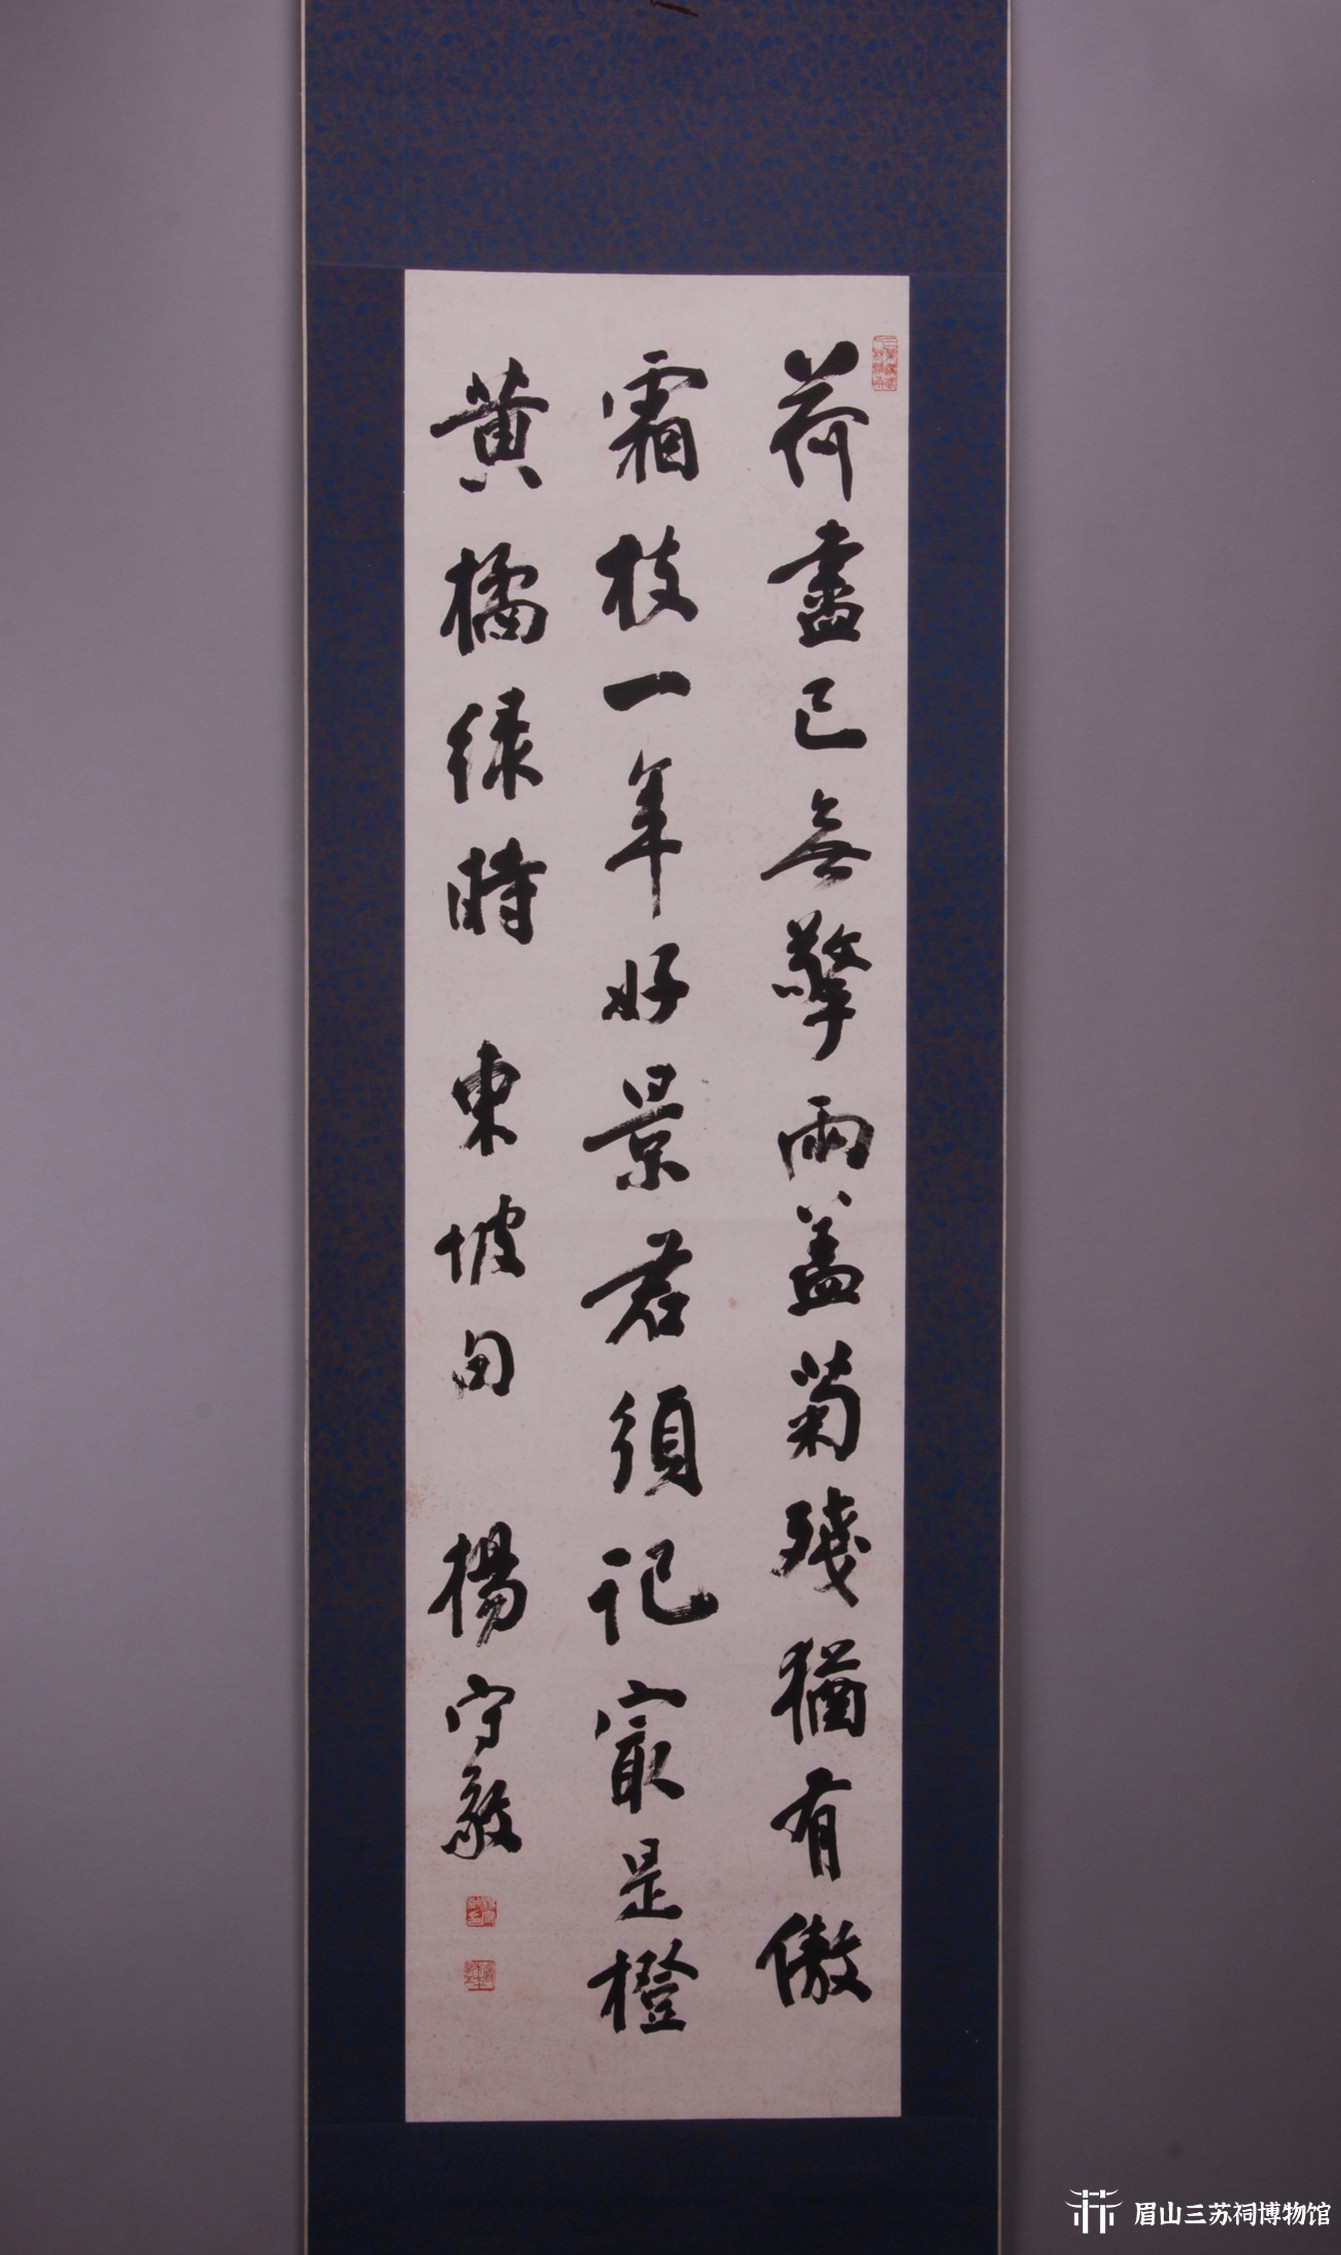 荷盡已無擎雨盖菊殘猶有傲
霜枝一年好景君須記冣是橙
黄橘緑時 東坡句 楊守敬
眉山三苏祠博物馆